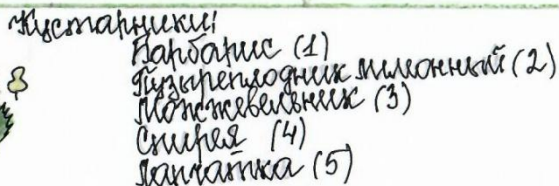 Кустарники:
Барбарис (1)
Пузыреплодник лимонный (2)
Можжевельник (3)
Спирея (4)
Лапчатка (5)